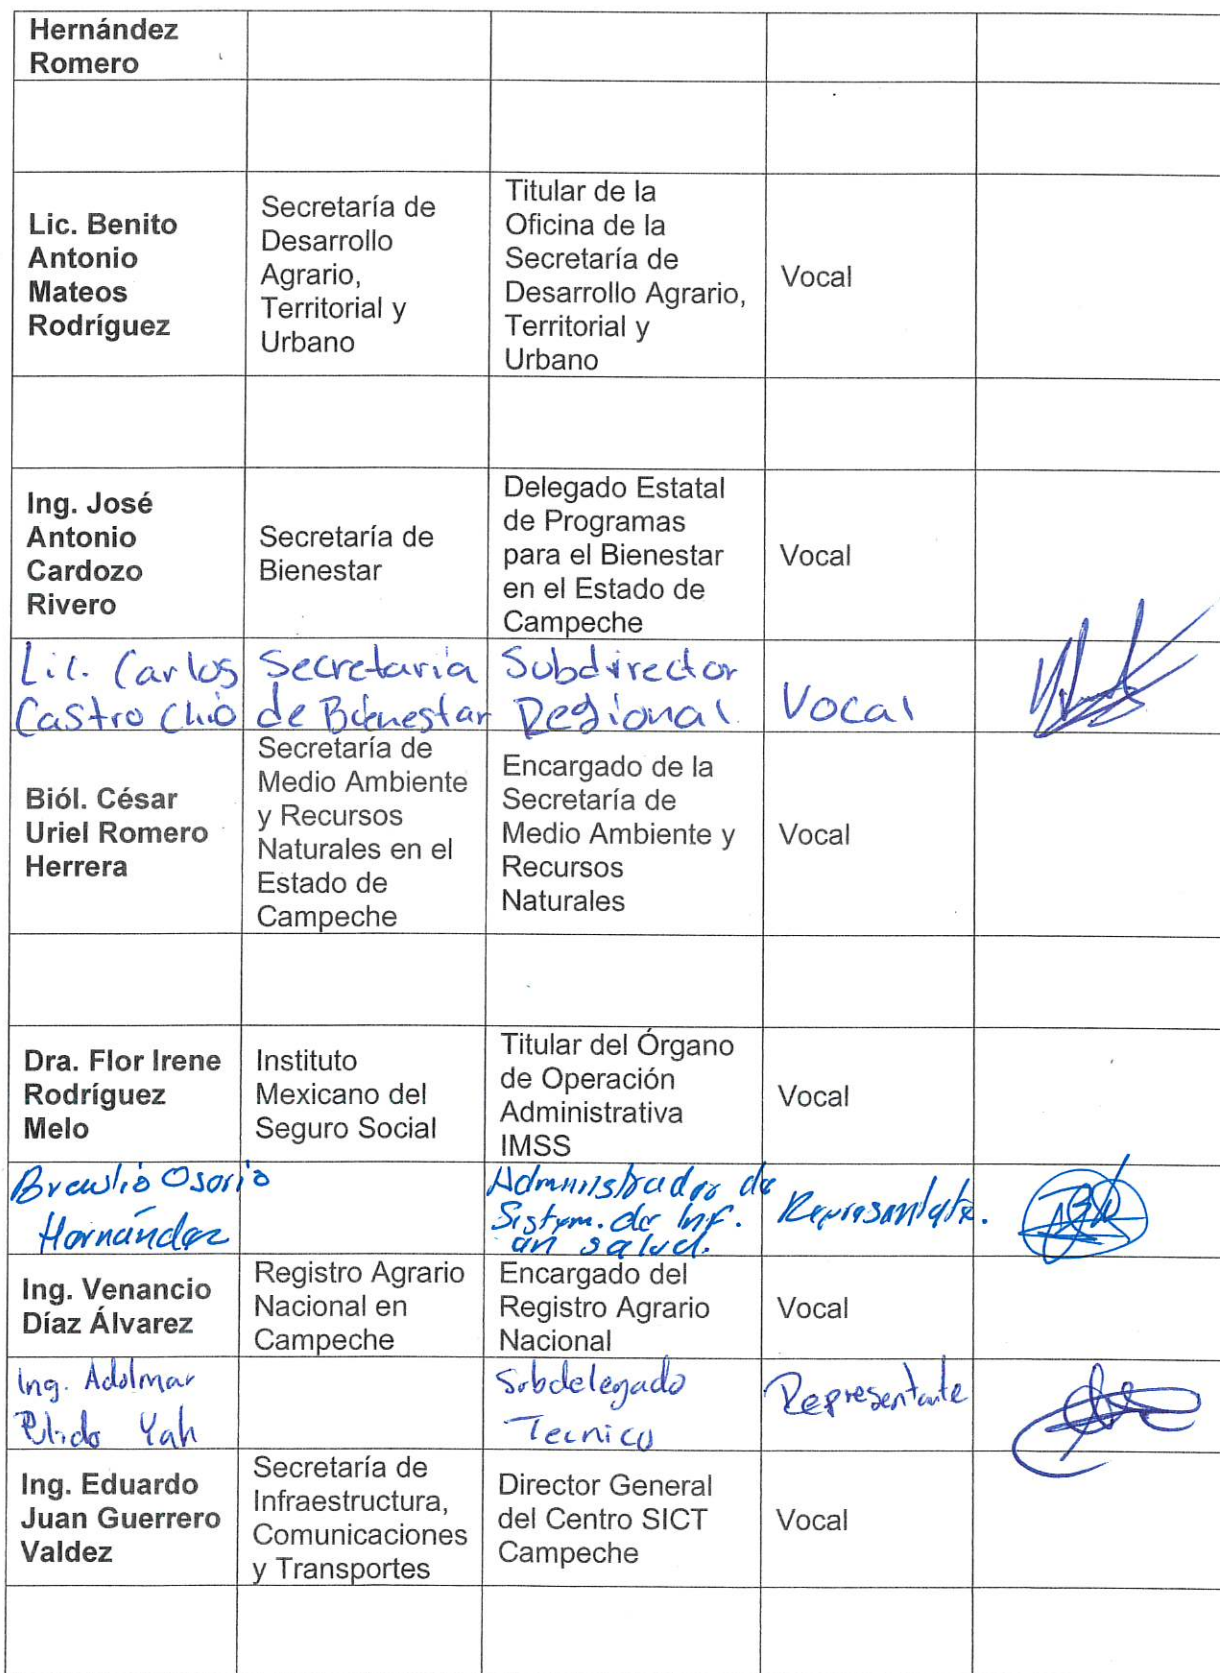 Hernández
Romero
Lic. Benito
Antonio
Mateos
Rodríguez
Secretaría de
Desarrollo
Agrario,
Territorial y
Urbano
Titular de la
Oficina de la
Secretaría de
Desarrollo Agrario,
Territorial y
Urbano
Vocal
Ing. José
Antonio
Cardozo
Rivero
Secretaría de
Bienestar
Delegado Estatal
de Programas
para el Bienestar
en el Estado de
Campeche
Vocal
Lic. Carlos
Castro Chió
Secretaria
de Bienestar
Subdirector
Regional
Vocal
Biól. César
Uriel Romero
Herrera
Secretaría de
Medio Ambiente
y Recursos
Naturales en el
Estado de
Campeche
Encargado de la
Secretaría de
Medio Ambiente y
Recursos
Naturales
Vocal
Dra. Flor Irene
Rodríguez
Melo
Instituto
Mexicano del
Seguro Social
Titular del Órgano
de Operación
Administrativa
IMSS
Vocal
Braulio Osorio
Hernández
Administrador de
Sistem. de Inf.
en salud.
Representante.
Ing. Venancio
Díaz Álvarez
Registro Agrario
Nacional en
Campeche
Encargado del
Registro Agrario
Nacional
Vocal
Ing. Adolmar
Yah
Subdelegado
Tecnico
Representante
Ing. Eduardo
Juan Guerrero
Valdez
Secretaría de
Infraestructura,
Comunicaciones
y Transportes
Director General
del Centro SICT
Campeche
Vocal